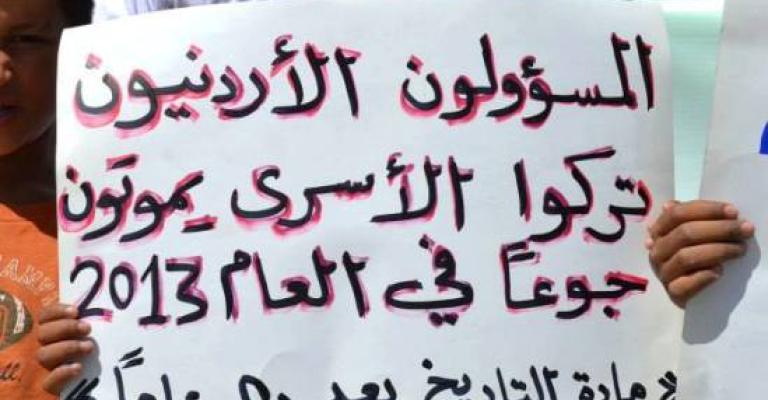 المسؤولون الأردنيون
تركوا الأسرى يموتون
جوعاً في العام 2013
« مادة التاريخ بعد عاماً »